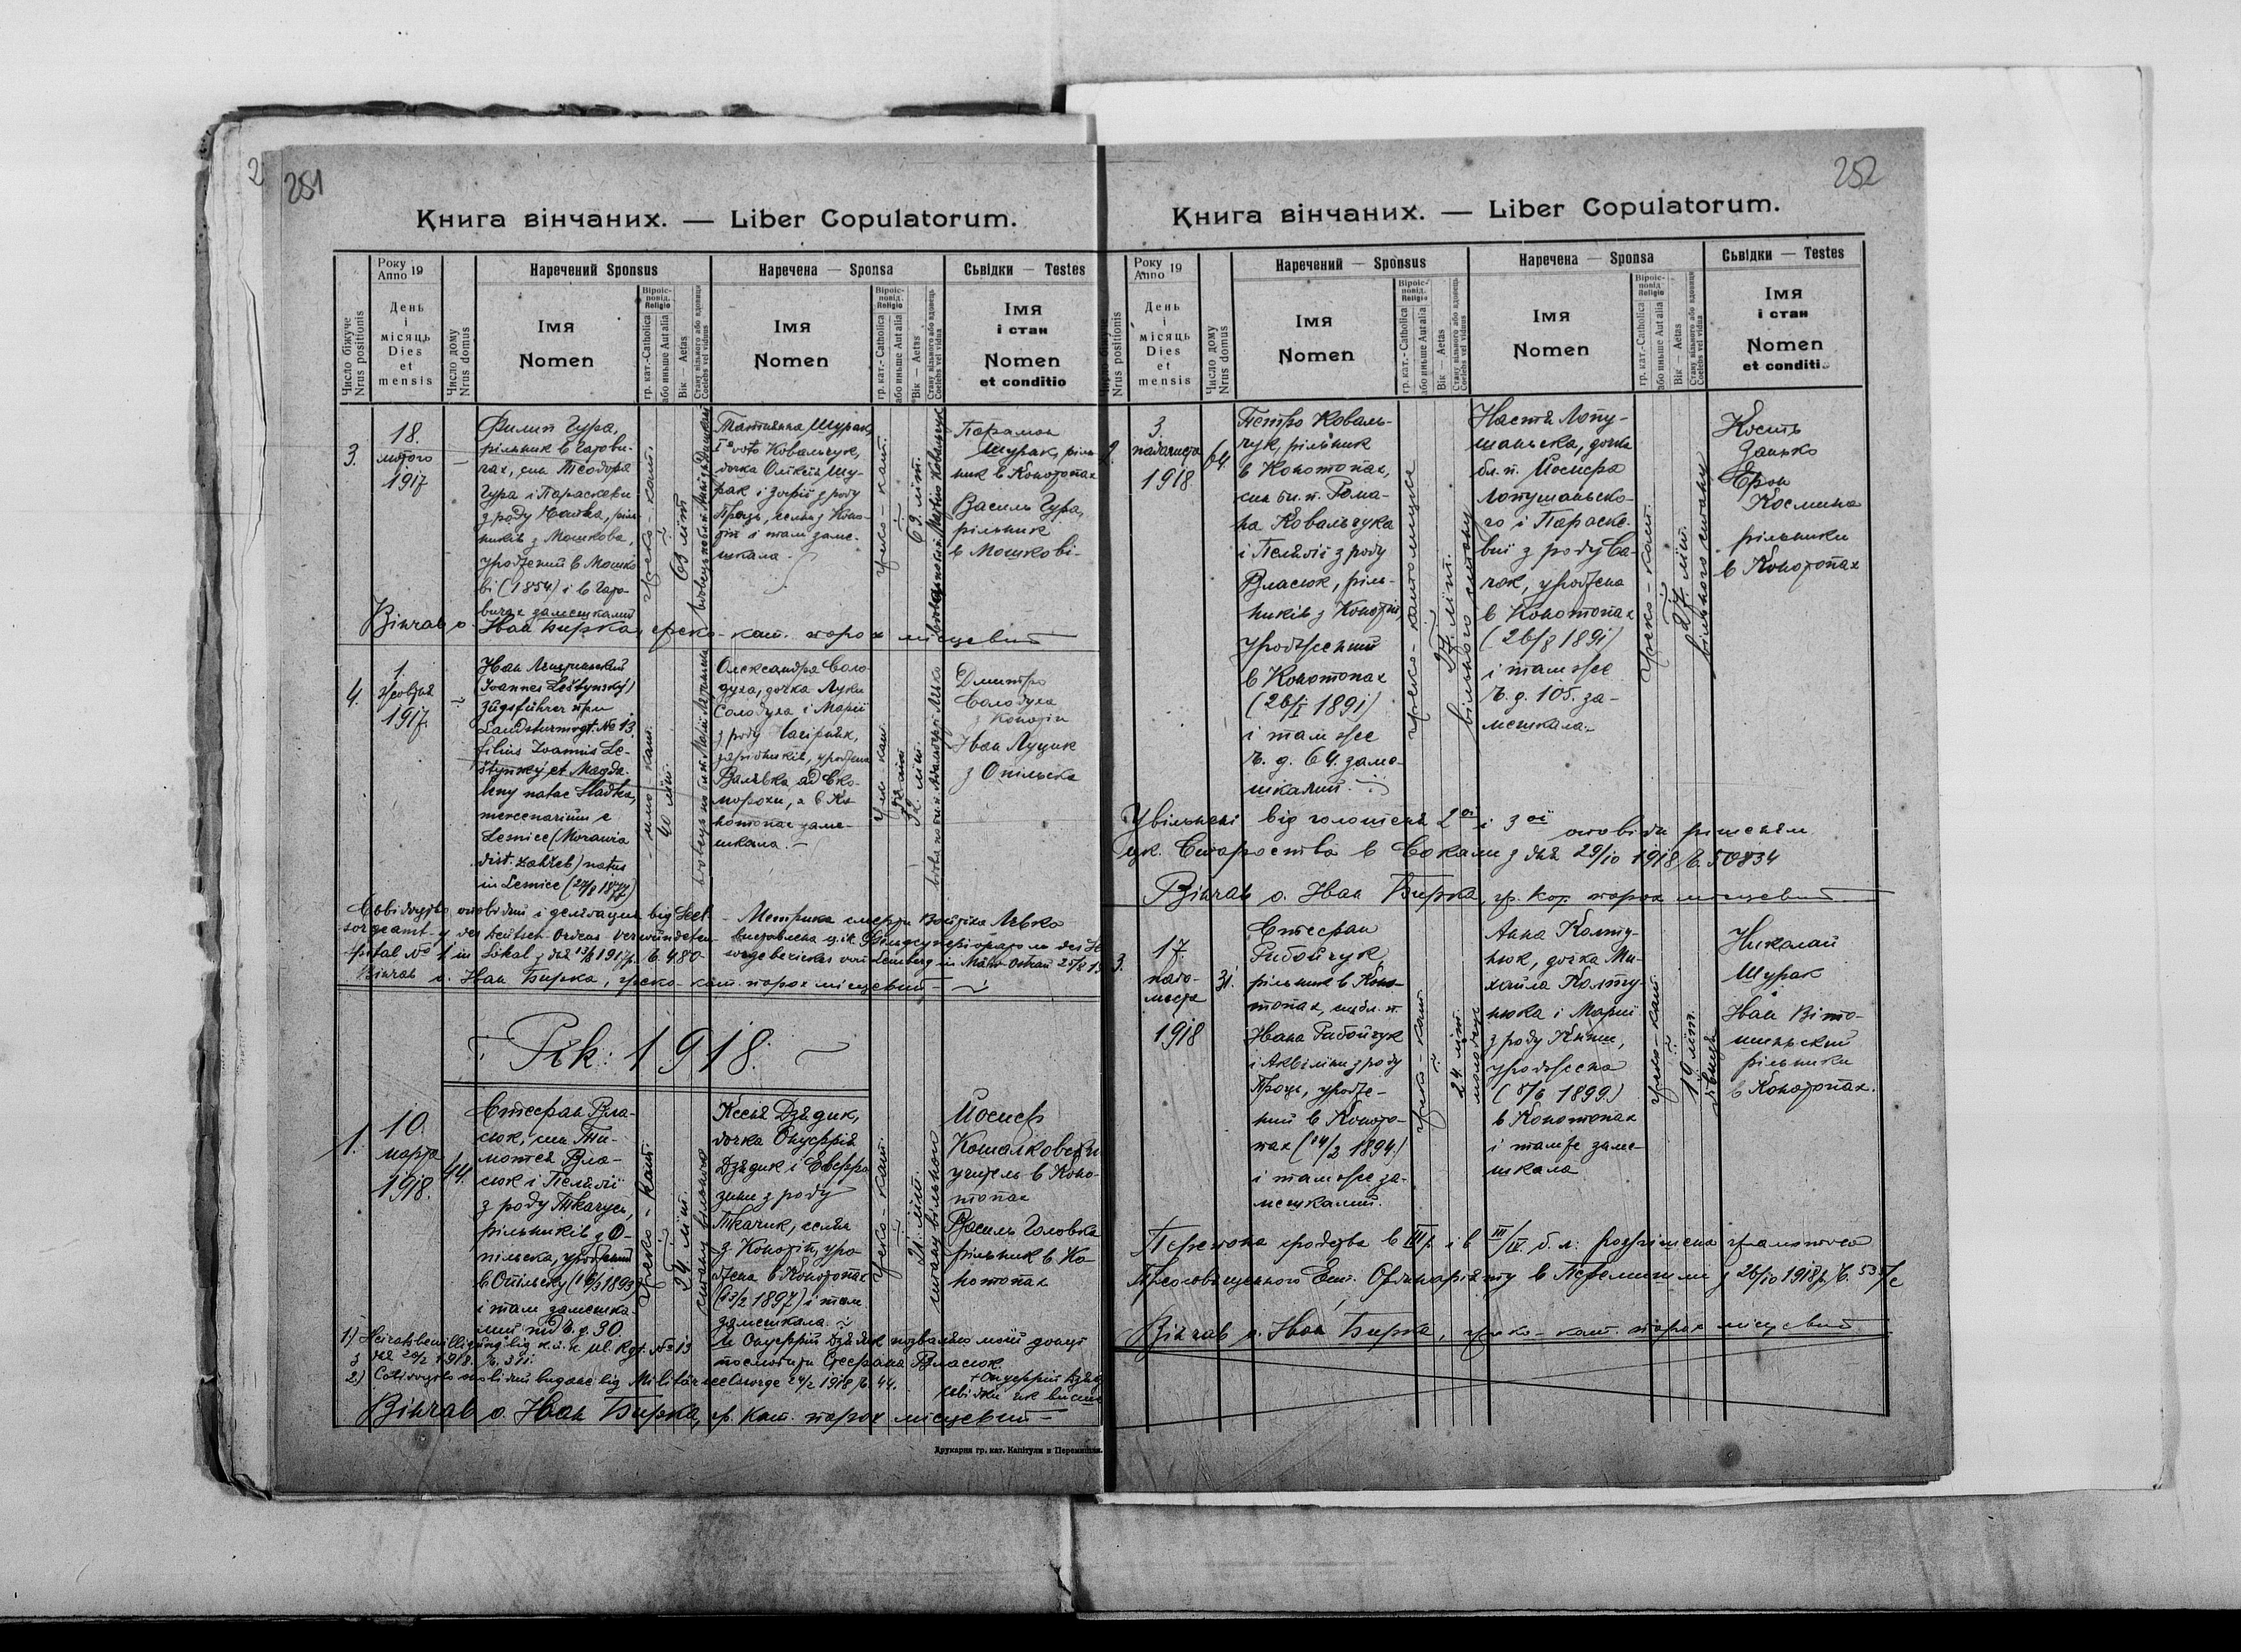 251
Книга вінчаних. — Liber Copulatorum.
Число біжуче
Nrus positionis
Року
Anno 19
День
і
місяць
Dies
et
mensis
Число дому
Nrus domus
Наречений Sponsus
Імя
Nomen
Віроіс-
повід.
Religio
гр. кат.-Catholica
або иньше Aut alia
Вік — Aetas
Стану вільного або вдовець
Coelebs vel viduus
Наречена — Sponsa
Імя
Nomen
Віроіс-
повід.
Religio
гр. кат.-Catholica
або иньше Aut alia
Вік — Aetas
Стану вільного або вдовець
Coelebs vel vidua
Сьвідки — Testes
Імя
і стан
Nomen
et conditio
3.
18.
лютого
1917
Филип Гура,
рільник в
син Теодора
Гура і Параскеви
з роду
з Мошкова,
уроджений в Мошко-
ві (1854) і в
замешкалий
греко-кат.
63 літ
Татиянна Щурак,
Iº voto Ковальчук,
дочка Олексія Щу-
рак і Зофії з роду
Процъ,
і там заме-
шкала.
греко-кат.
63 літ.
Парамон
Щурак,ріль-
ник в Конотопах
Василь Гура,
рільник
в Мошкові
Вінчав о. Іван Бирка, греко-кат. парох місцевий
4.
1.
жовтня
1917.
Іван
(Joannes Leštynský)
Zugsführer при
Landsturmrgt. № 13.
filius Joannis Le-
štynský et Magda-
leny natae Hladka,
mercenarium e
Lesnice (Moravia
dist. Zábřeh) natus
in Lesnice (27/8 1877)
40 літ.
Олександра Соло-
духа, дочка Луки
Солодуха і Марії
з роду
зарібників, уроджена
ад Ско-
морохи, а в Ко-
нотопах заме-
шкала.
32 літ.
Дмитро
Солодуха
з Конотіп
Іван Луцик
з Опільска
Свідоцтво оповідий і делєгация від Seel-
sorgeamt-у des Deutsch-Ordens Verwundeten-
spital № 1 in Sokal з дня 1917 ч. 480
Метрика смерти
виставлена ц. ік.
Вінчав о. Іван Бирка, греко-кат. парох місцевий
Рік: 1918.
1.
10.
марта
1918.
44.
Стефан Вла-
сюк, син Ти-
мотея Вла-
сюк і Пеляґії
з роду Ткачук,
рільників з О-
пільска, уроджений
в Опільску (16/3 1893)
і там замешка-
лий під ч. д. 30
греко-кат.
24 літ.
стану вільного
Ксеня Дзядик,
дочка Онуфрія
Дзядик і Евфро-
зини з роду
Ткачик, селян
з Конотіп, уро-
джена в Конотопах
(23/2 1897) і там
замешкала.
греко-кат.
21 літ.
стану вільного
Йосиф
учитель в Коно-
топах
Василь Головка
рільник в Ко-
нотопах
1) Heiratsbewilligung від k. u. k. Ul. Rgt. № 13
з дня 20/2 1918.
2) Свідоцтво оповідий видане від Militärseelsorge 24/2 1918 ч. 44.
Я Онуфрий Дзядик позваляю моїй доньці
пошлюбити Стефана Власюк.
+ Онуфрий Дзядик
свідки як висше
Вінчав о. Іван Бирка, гр. кат. парох місцевий
Друкарня гр. кат. Капітули в Перемишли.
252
Книга вінчаних. — Liber Copulatorum.
Число біжуче
Nrus positionis
Року
Anno 19
День
і
місяць
Dies
et
mensis
Число дому
Nrus domus
Наречений — Sponsus
Імя
Nomen
Віроіс-
повід.
Religio
гр. кат.-Catholica
або иньше Aut alia
Вік — Aetas
Стану вільного або вдовець
Coelebs vel viduus
Наречена — Sponsa
Імя
Nomen
Віроіс-
повід
Religio
гр. кат.-Catholica
або иньше Aut alia
Вік — Aetas
Стану вільного або вдовиця
Coelebs vel vidua
Сьвідки — Testes
Імя
і стан
Nomen
et conditio
2.
3.
падолиста
1918.
64.
Петро Коваль-
чук, рільник
в Конотопах,
син бл. п. Рома-
на Ковальчука
і Пеляґії з роду
Власюк, ріль-
ників з Конотіп,
уроджений
в Конотопах
(26/I 1891)
і там же
ч. д. 64. заме-
шкалий.
греко-католицке
27 літ.
вільного стану
Настя Лопу-
шаньска, дочка
бл. п. Йосифа
Лопушаньско-
го і Параске-
вії з роду Са-
чок, уроджена
в Конотопах
(26/8 1891)
і там же
ч. д. 105. за-
мешкала.
греко-кат.
27 літ.
вільного стану
Кость
Занько
Космина
рільники
в Конотопах
Увільнені від голошеня 2ої і 3ої оповіди рішенєм
цк. Староства в Сокали з дня 29/10 1918 ч. 50834
Вінчав о. Іван Бирка, гр. кат. парох місцевий
3.
17.
падо-
листа
1918
31.
Стефан
Рибойчук
рільник в Коно-
топах, син бл. п.
Івана Рибойчук
і Аквіліни з роду
Процъ, уродже-
ний в Коното-
пах (14/2 1894.)
і там же за-
мешкалий.
греко-кат.
24 літ.
Анна Колту-
нюк, дочка Ми-
хайла Колту-
нюка і Марії
з роду
уроджена
(8/6 1899.)
в Конотопах
і тамже заме-
шкала
греко-кат
19 літ.
дівиця
Николай
Щурак
Іван Віто-
шиньский
рільники
в Конотопах.
Перепона сродства в III і в III/IV. б. л. розрішена грамотою
Преосвященного Еп. Ординаріяту в Перемишли з 26/10 1918 р. ч.
Вінчав о. Іван Бирка, греко-кат. парох місцевий.